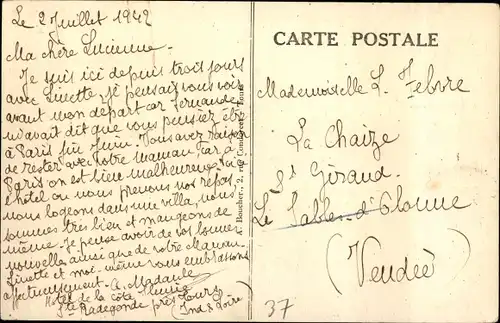 Le 2 Juillet 1942
Ma chère Lucienne.
Je suis ici depuis trois jours
avec Linette, je pensais vous voir
avant mon départ car Fernande
m'avait dit que vous pensiez être
à Paris fin Juin. Vous avez raison
de rester avec votre maman car à
Paris on est bien malheureux. Ici
l'hôtel où nous prenons nos repas,
nous logeons dans une villa, nous
sommes très bien et mangeons de
même. Je pense avoir de vos bonnes
nouvelles ainsi que de votre Maman.
Linette et moi-même vous embrassons
affectueusement. A. Madaule
Hôtel de la côte
Ste Radegonde près Tours
(Ind & Loire)
Boucher, 2, rue
CARTE POSTALE
Mademoiselle L. Febvre
La Chaize
St Giraud.
Le Sables d'Olonne
(Vendée)
37